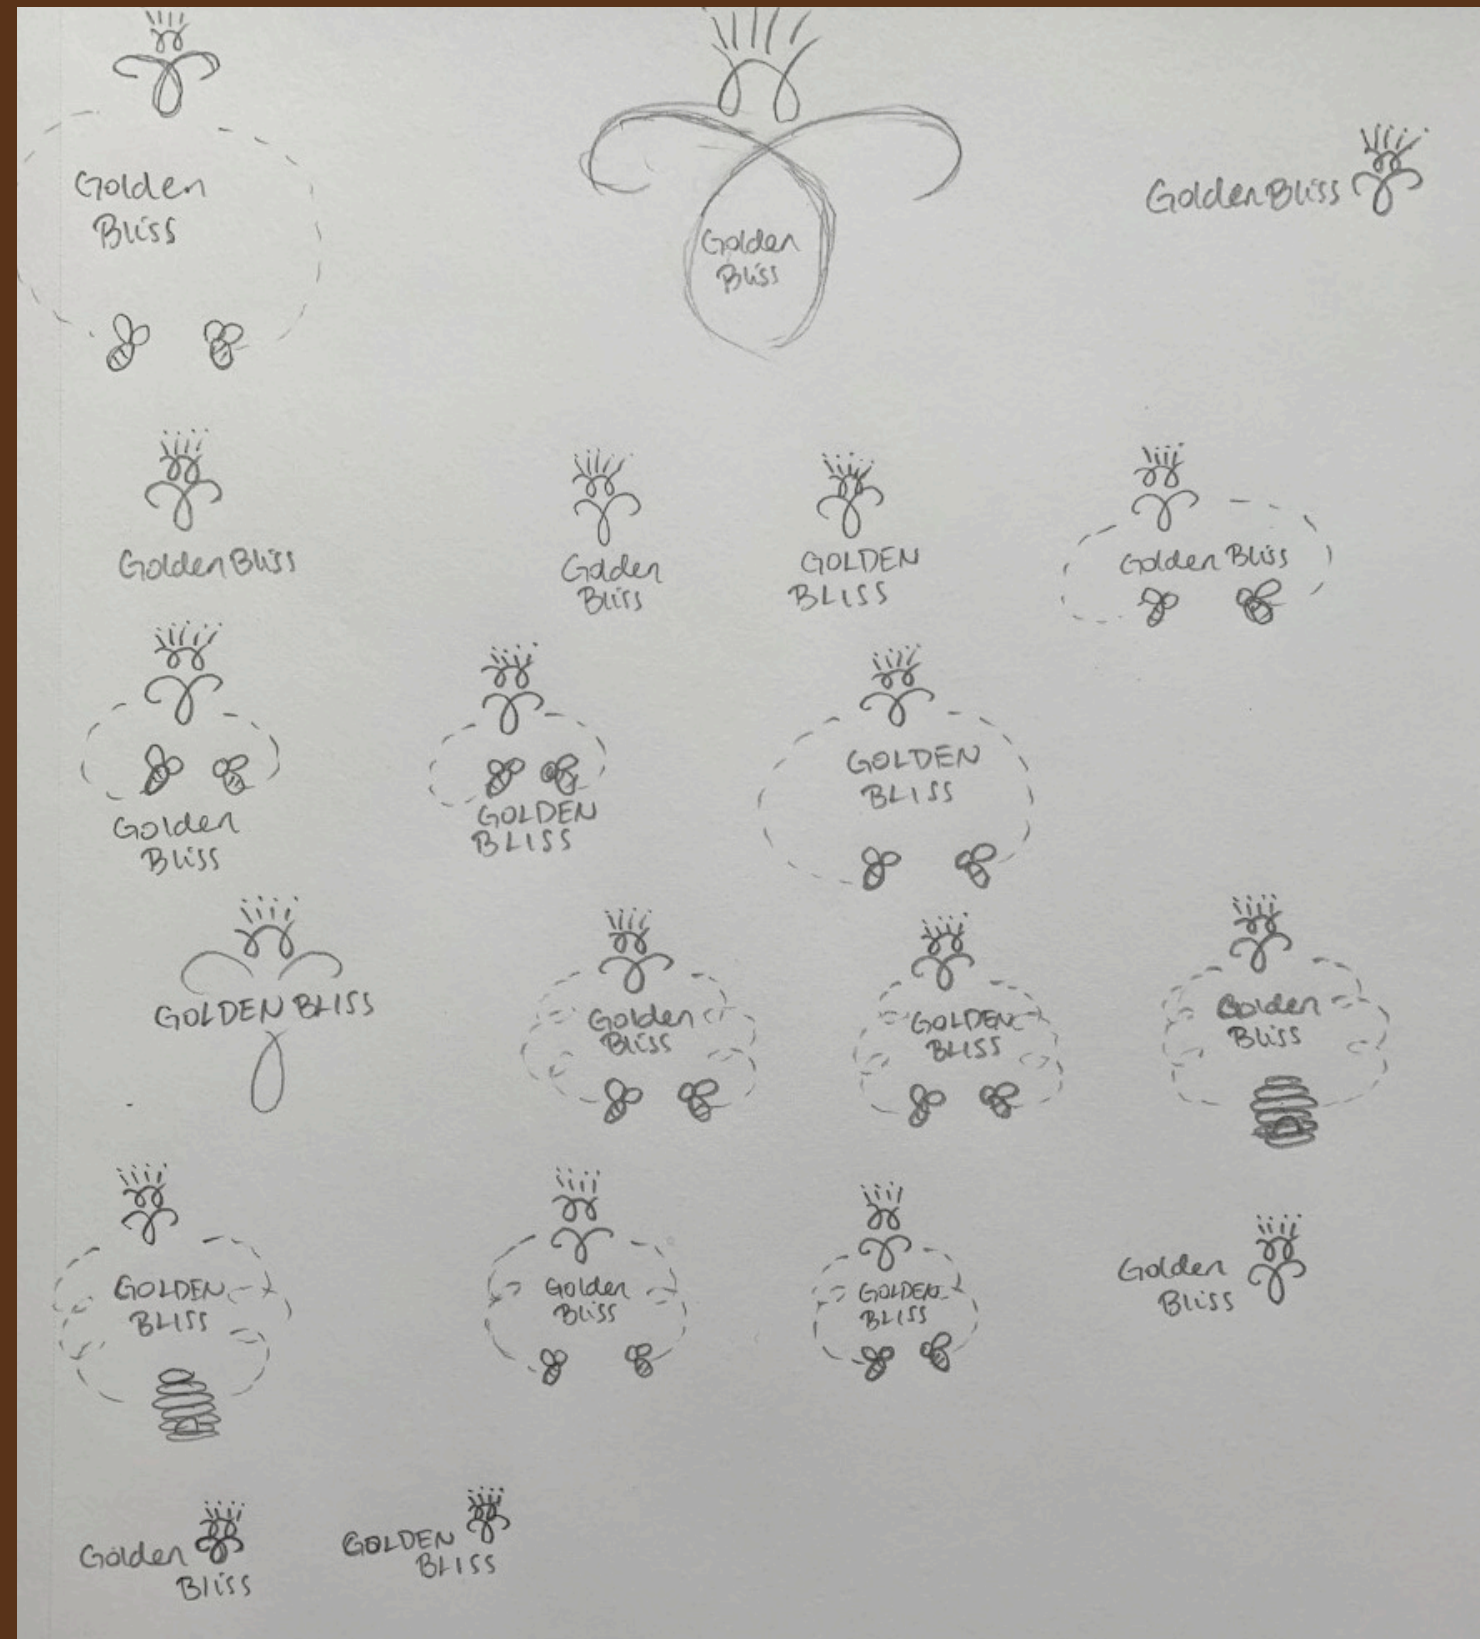 Golden
Bliss
Golden
Bliss
Golden Bliss
Golden Bliss
Golden
Bliss
GOLDEN
BLISS
Golden Bliss
Golden
Bliss
GOLDEN
BLISS
GOLDEN
BLISS
GOLDEN BLISS
Golden
Bliss
GOLDEN
BLISS
Golden
Bliss
GOLDEN
BLISS
Golden
Bliss
GOLDEN
BLISS
Golden
Bliss
Golden
Bliss
GOLDEN
BLISS